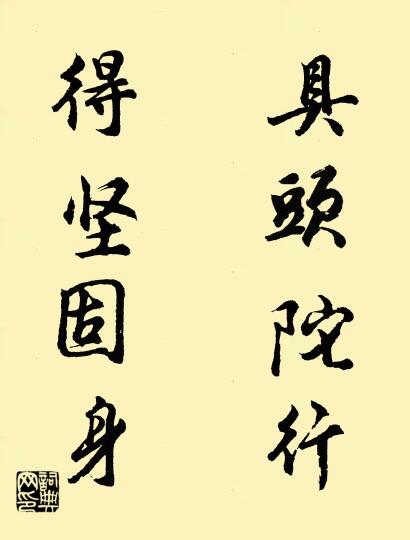 具頭陀行
得坚固身
詞典网印